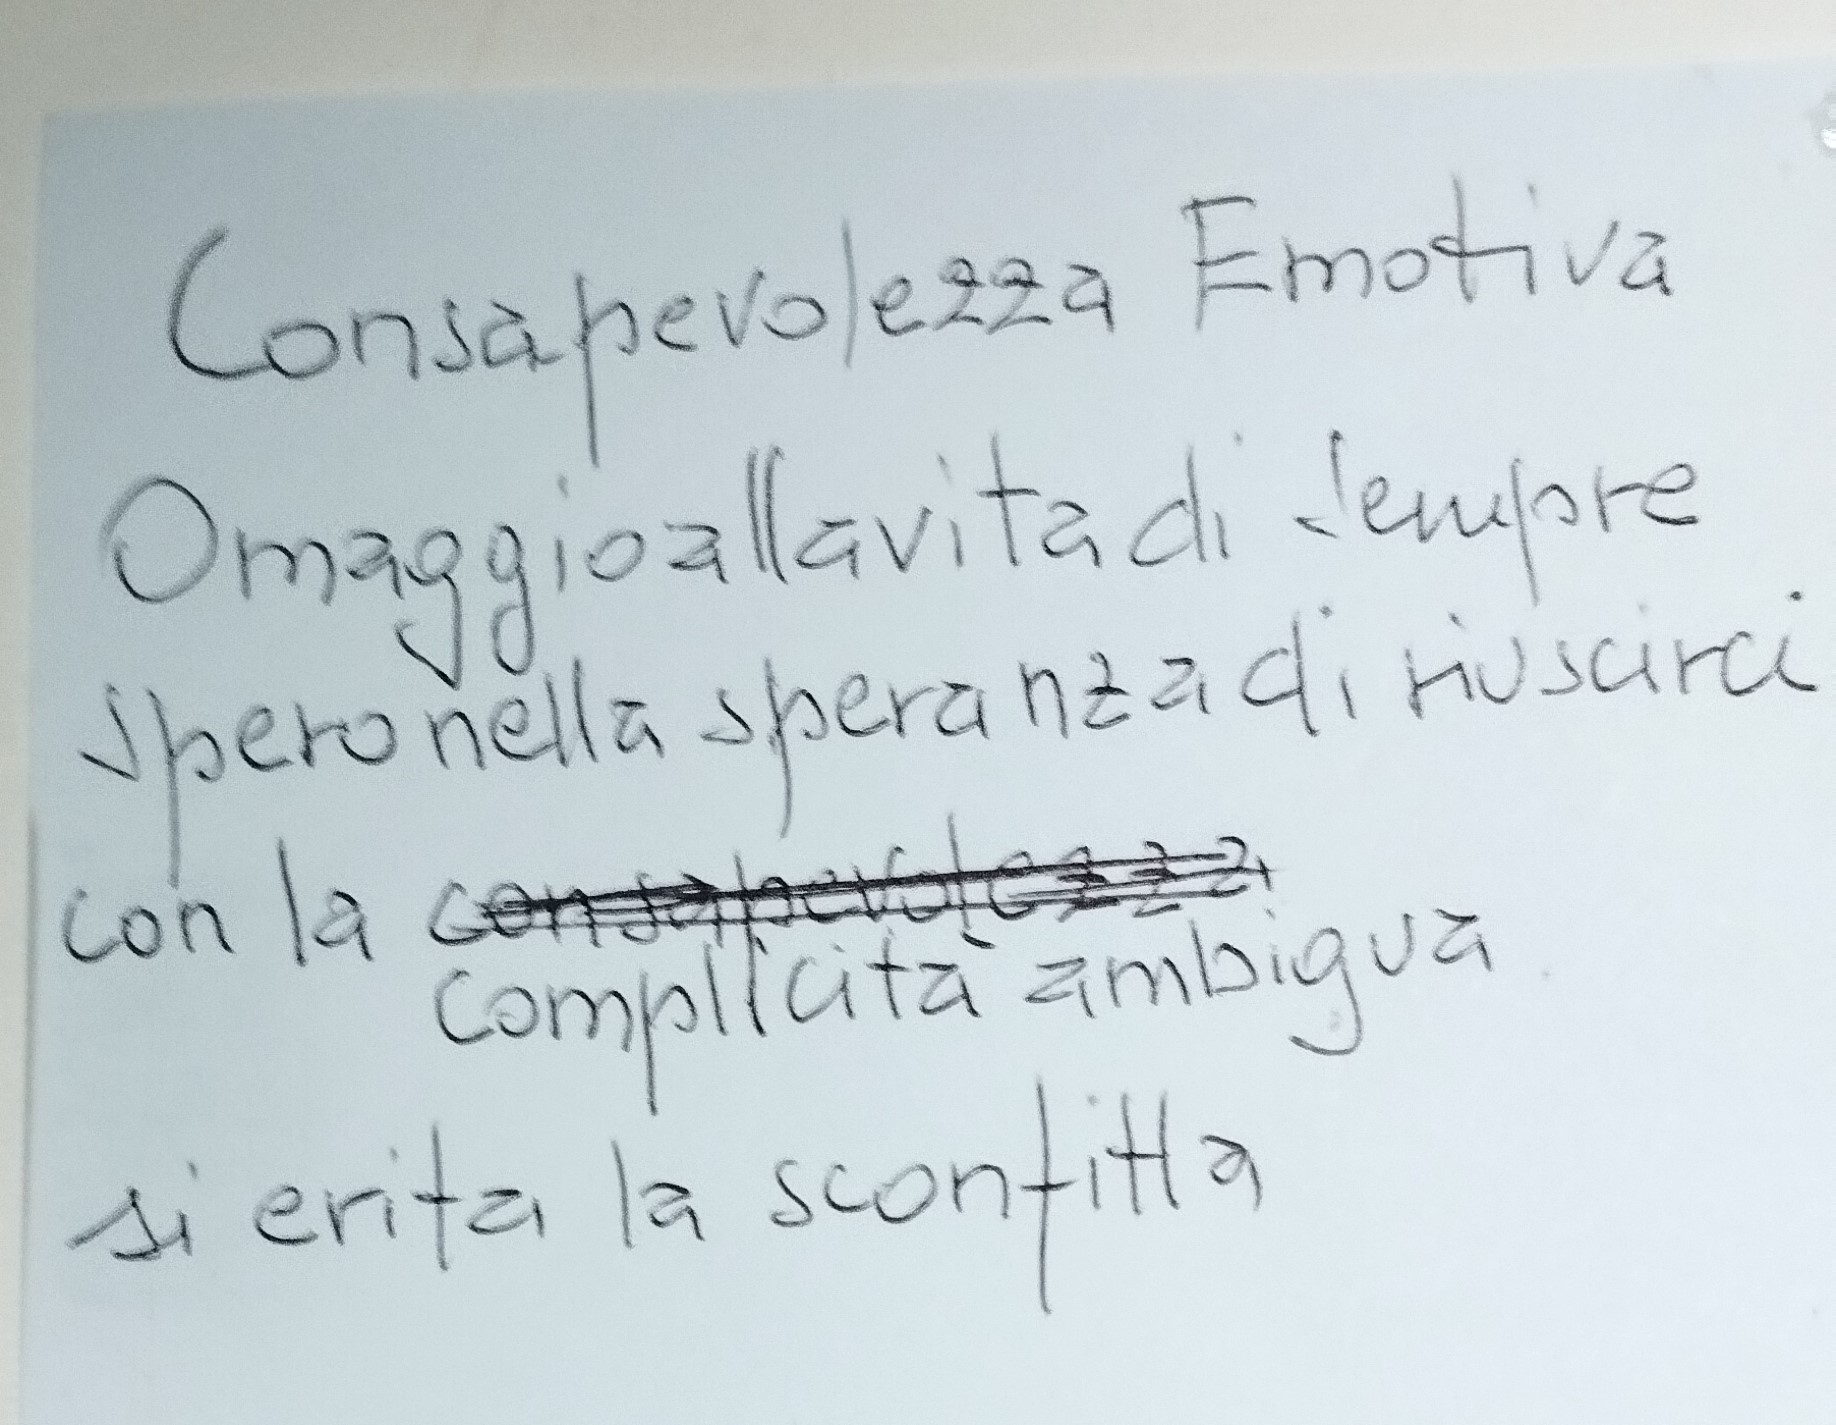 Consapevolezza Emotiva
Omaggio alla vita di sempre
spero nella speranza di riuscirci
con la consapevolezza
complicità ambigua
si erita la sconfitta